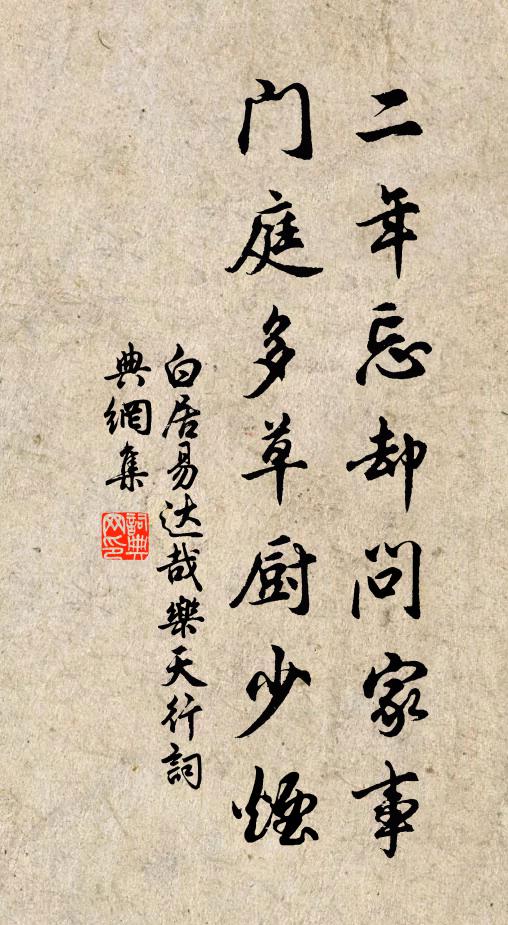 二年忘却问家事
门庭多草厨少煙
白居易达哉樂天行詞
典網集
詞典网印